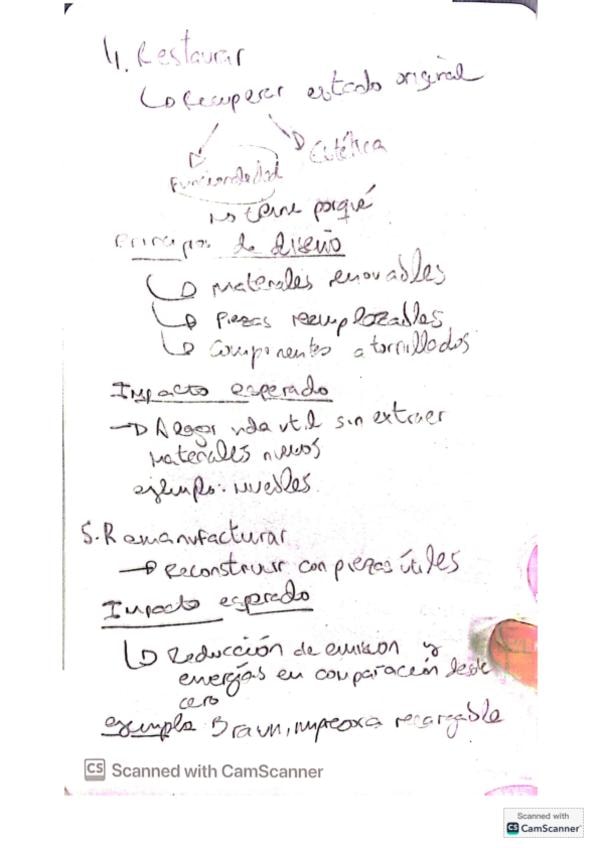 4. Restaurar
↳ Recuperar estado original
Funcionalidad
Estética
no tiene porqué
Principios de diseño
↳ materiales renovables
↳ Piezas reemplazables
↳ componentes atornillados
Impacto esperado
→ Alargar vida util sin extraer
materiales nuevos
ejemplo: muebles.
5. Remanufacturar
→ Reconstruir con piezas útiles
Impacto esperado
↳ Reducción de emision y
energías en comparación desde
cero
ejemplo Braun, recargable
CS Scanned with CamScanner
Scanned with
CS CamScanner